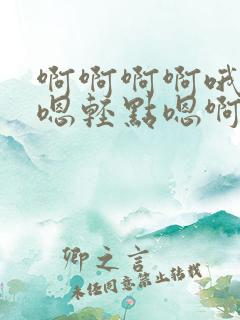 啊啊啊啊哦
嗯轻點嗯啊
卿之言
未经同意禁止转载